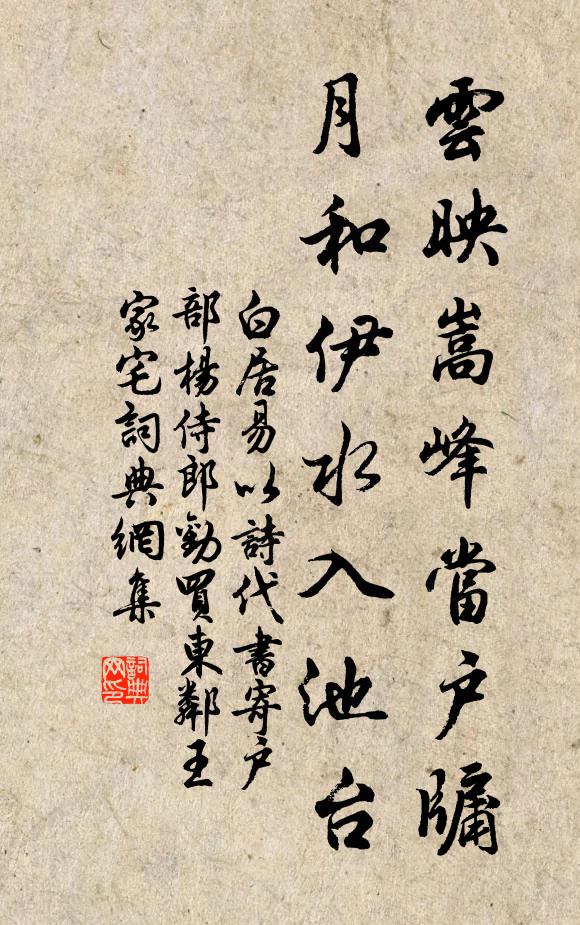 雲映嵩峰當户牖
月和伊水入池台
白居易以詩代書寄户
部楊侍郎勸買東鄰王
家宅詞典網集
詞典网印